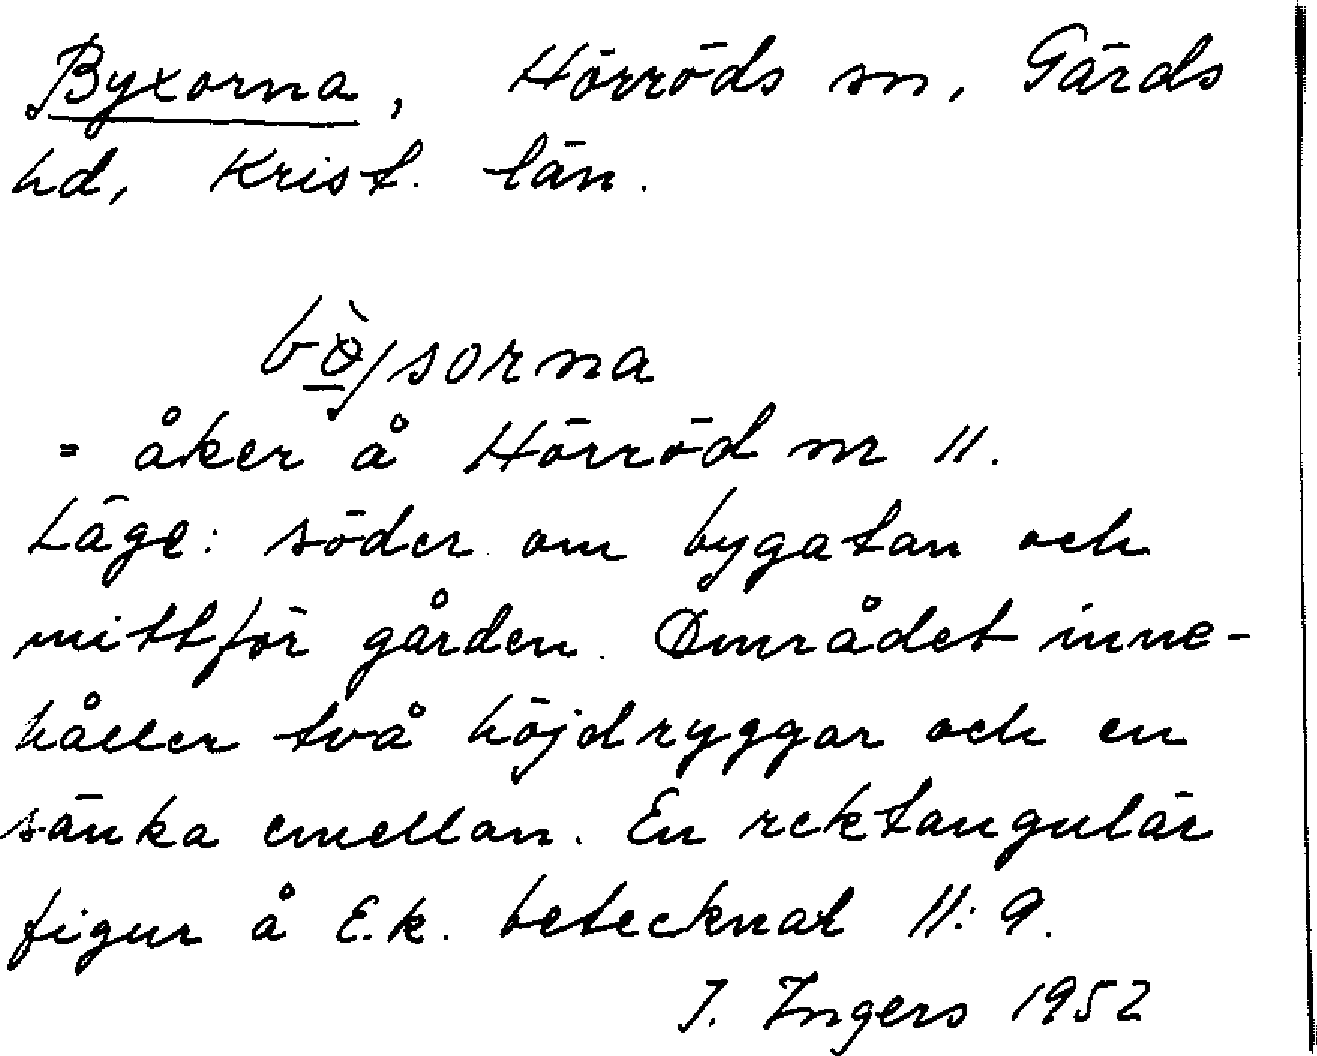 Byxorna, Hörröds sn, Gärds
hd, Krist. län.
bö̀jsorna
= åker å Hörröd nr 11.
Läge: söder om bygatan och
mittför gården. Området inne-
håller två höjdryggar och en
sänka emellan. En rektangulär
figur å E.k. betecknat 11:9.
I. Ingers 1952